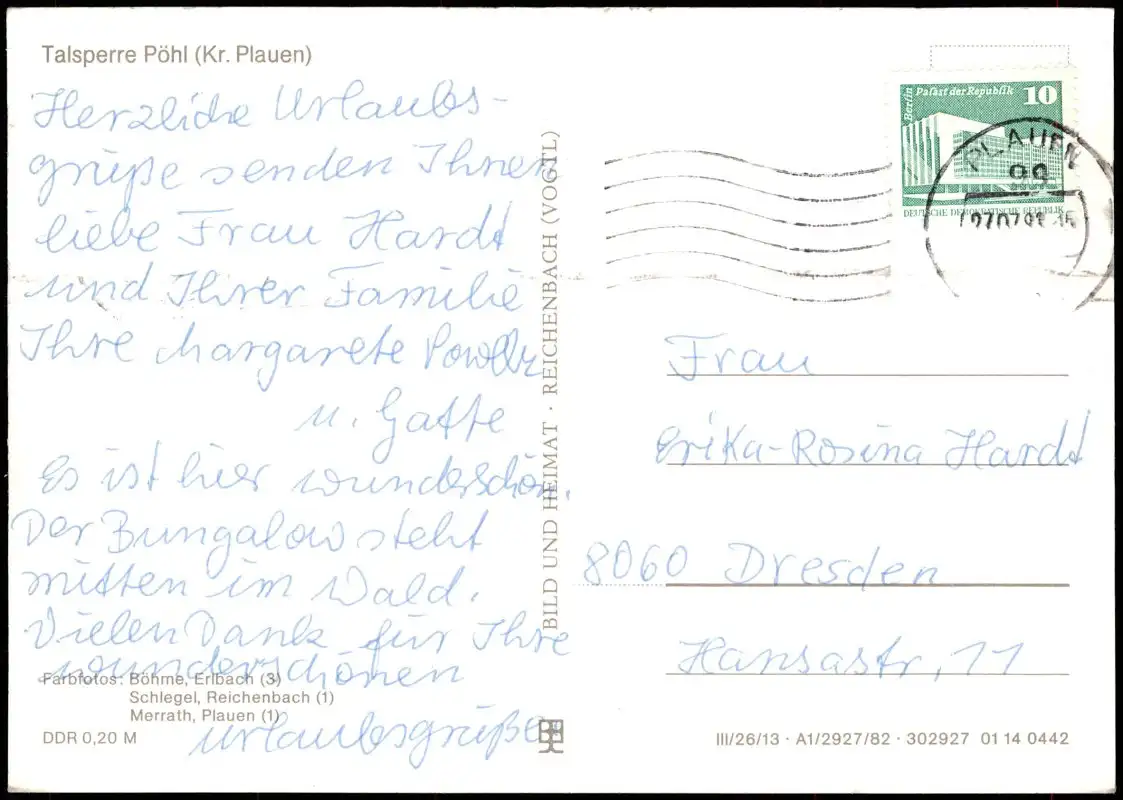 Talsperre Pöhl (Kr. Plauen)
Herzliche Urlaubs-
grüße senden Ihnen
liebe Frau Hardt
und Ihrer Familie
Ihre Margarete
u. Gatte
Es ist hier wunderschön.
Der Bungalow steht
mitten im Wald.
Vielen Dank für Ihre
wunderschönen
Urlaubsgrüße.
Farbfotos: Böhme, Erlbach (3)
Schlegel, Reichenbach (1)
Merrath, Plauen (1)
DDR 0,20 M
BILD UND HEIMAT · REICHENBACH (VOGTL)
Berlin
Palast der Republik 10
DEUTSCHE DEMOKRATISCHE REPUBLIK
PLAUEN
Frau
Erika-Rosina Hardt
8060 Dresden
Hansastr, 11
III/26/13 · A1/2927/82 · 302927 01 14 0442